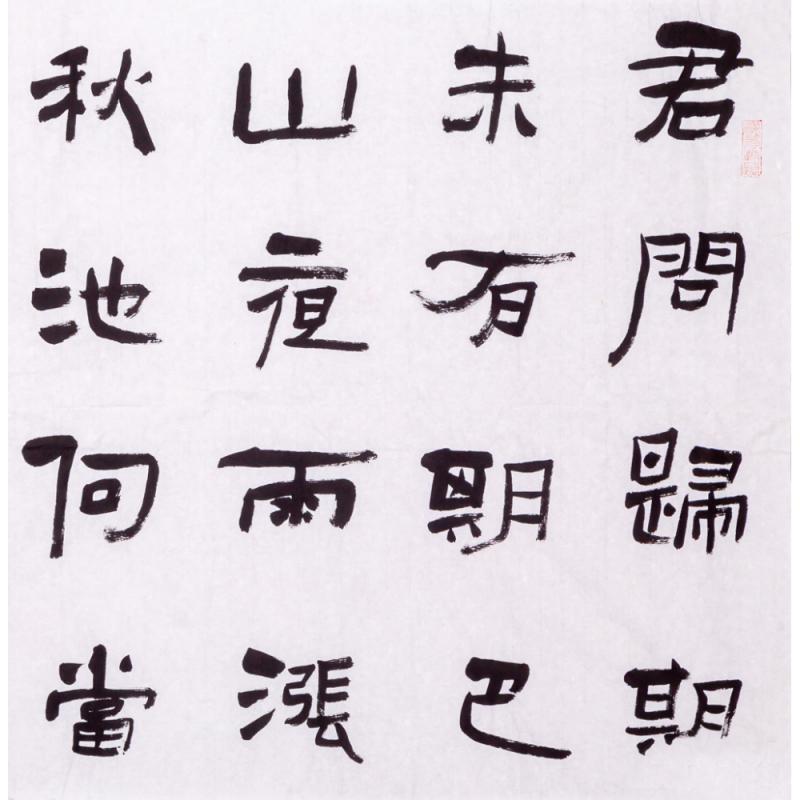 君問歸期
未有期巴
山夜雨漲
秋池何當